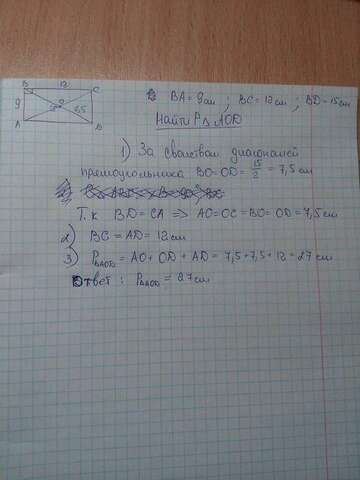 B 12 C
9 O 7,5
A D
BA = 9 см ; BC = 12 см ; BD = 15 см
Найти P△ AOD
1) За свойством диагоналей
прямоугольника BO = OD = 15/2 = 7,5 см
Т.к BD = CA => AO = OC = BO = OD = 7,5 см
2) BC = AD = 12 см
3) P△AOD = AO + OD + AD = 7,5 + 7,5 + 12 = 27 см
Ответ : P△AOD = 27 см